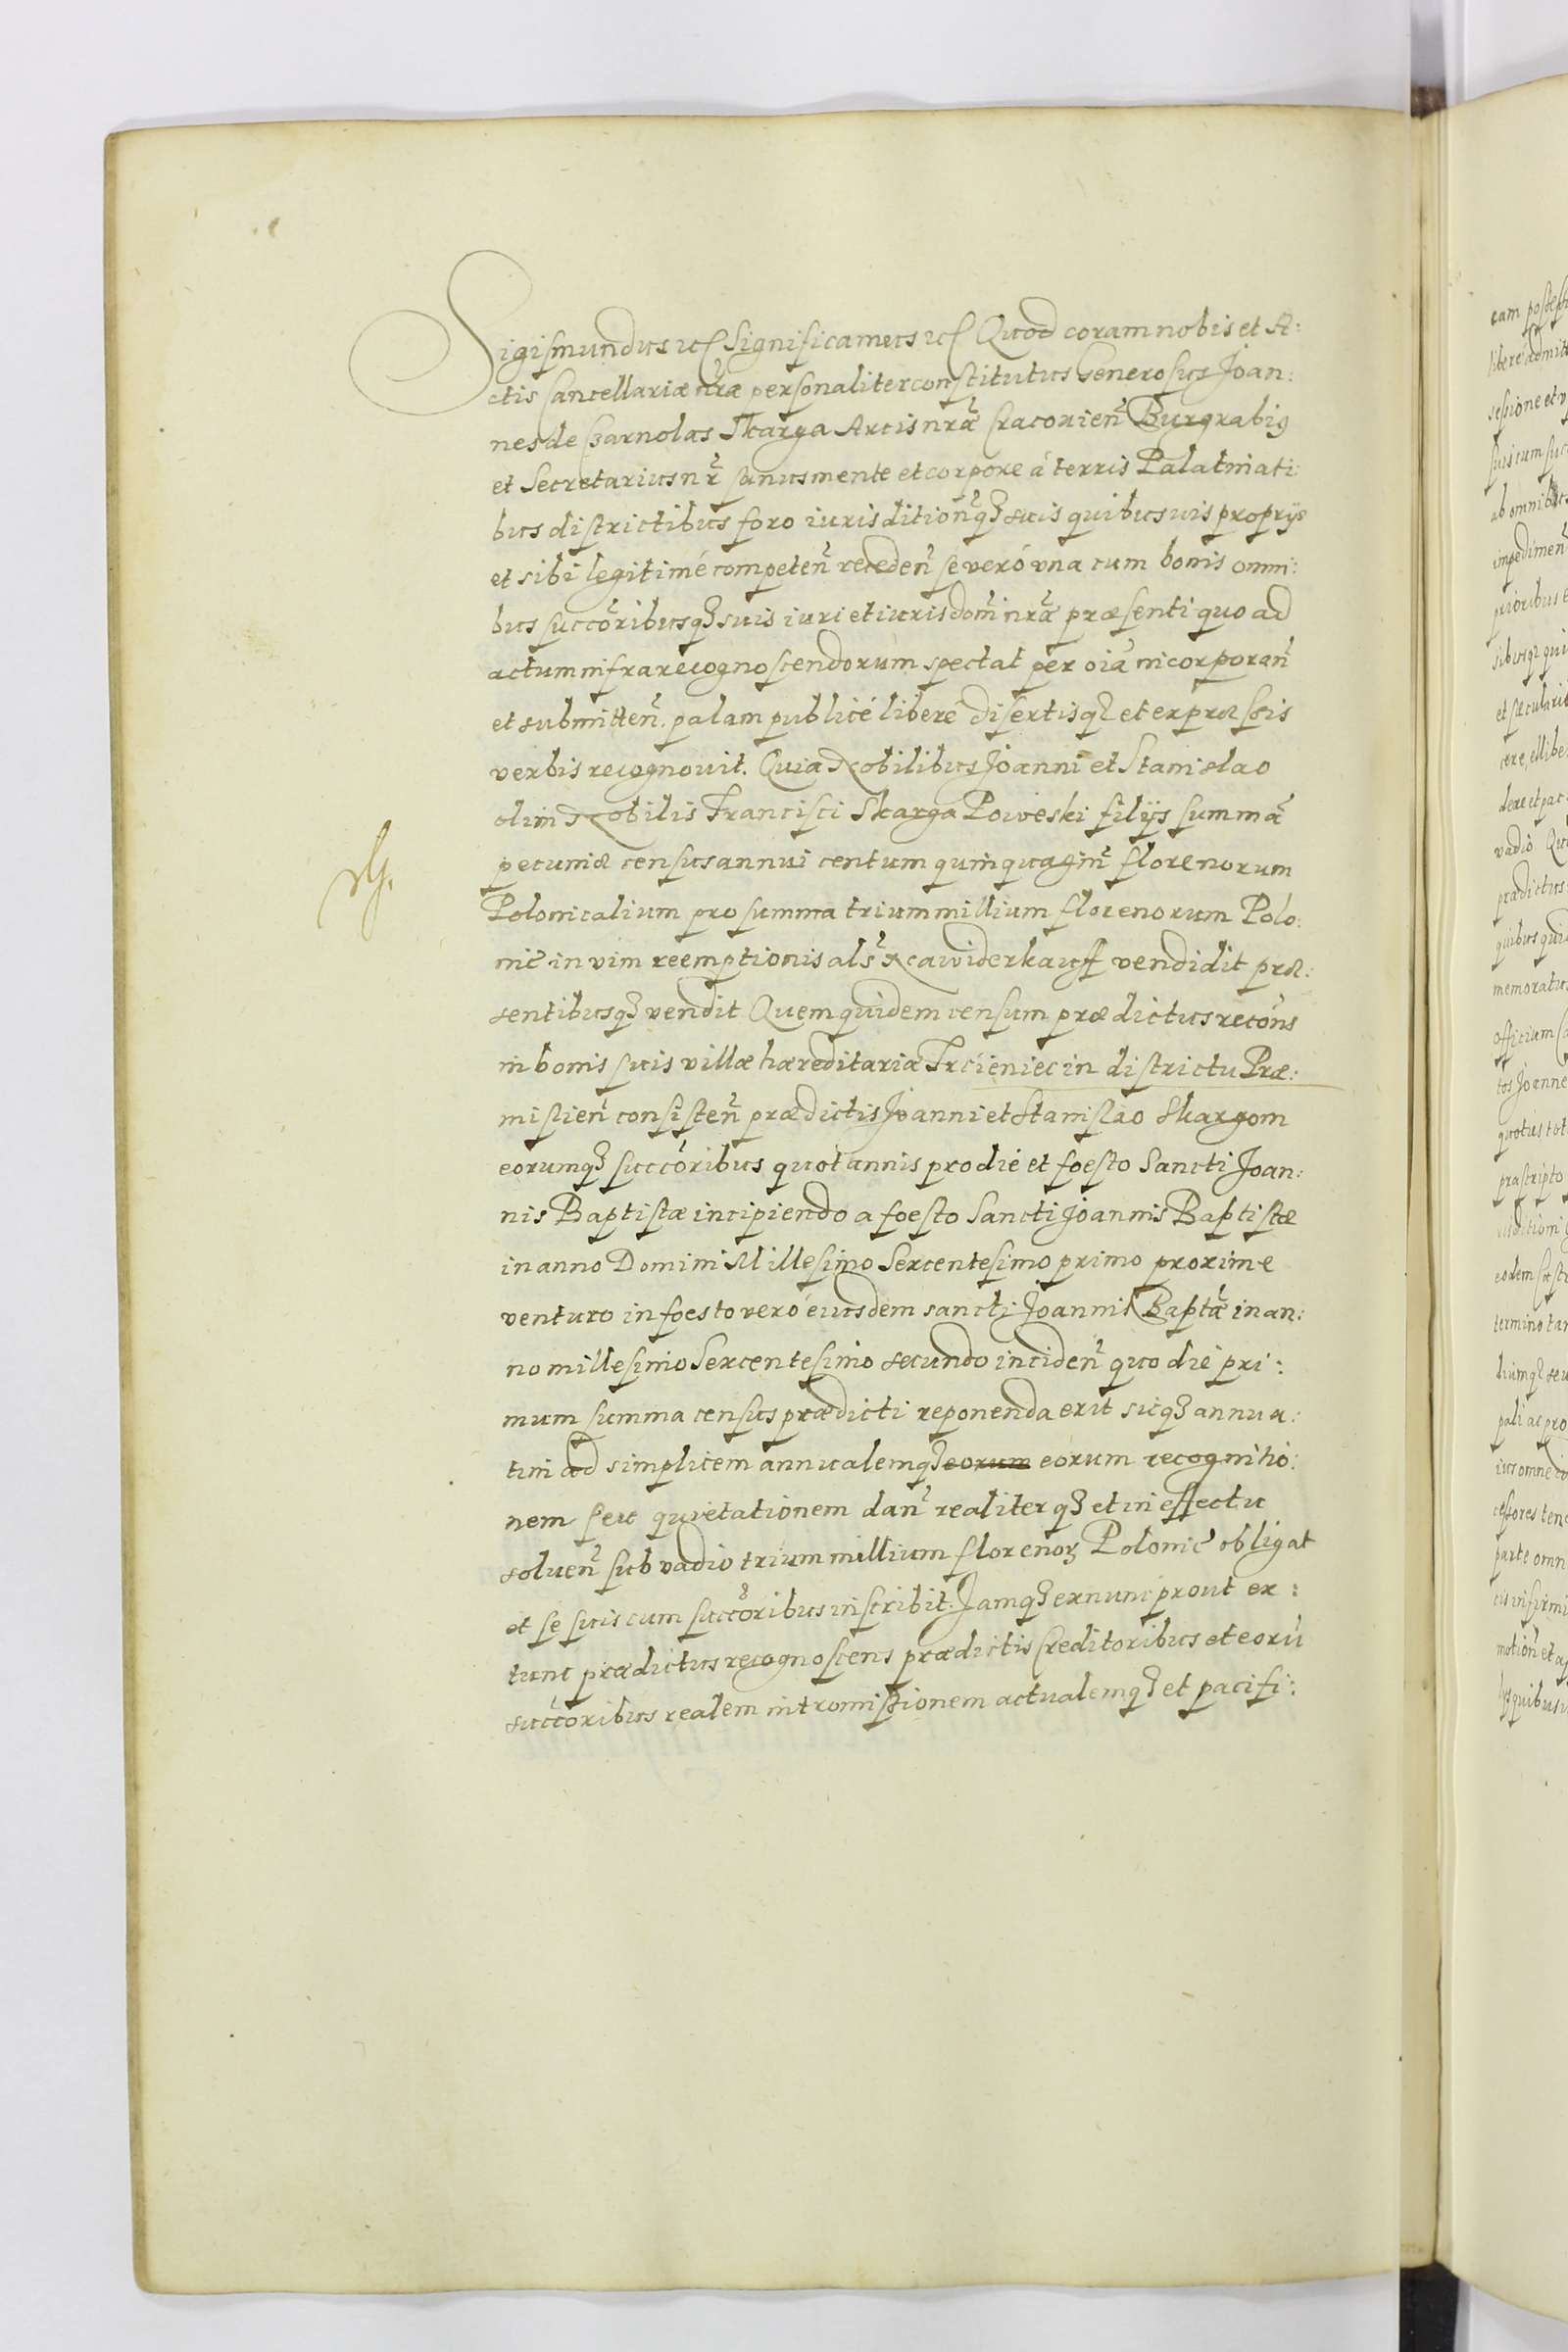 Sigismundus etc Significamus etc Quod coram nobis et A:
ctis Cancellariæ nr̃æ personaliter constitutus Generosus Joan:
nes de Czarnolas Skarga Arcis nrã Cracovień Burgrabi9
et Secretarius nr̃ sanus mente et corpore á terris Palatinati
bus districtibus foro iurisdition̄qȝ suis quibusuis proprijs
et sibi legitimé competeñ recedeñ se veró vna cum bonis omni:
bus succõribusqȝ suis iuri et iurisdom̃ nrã præsenti quo ad
actum infrarecognoscendorum spectat per oiã incorporañ
et submitteñ. palam publicé liberé disertisqȝ et expræssis
verbis recognouit. Quia Nobilibus Joanni et Stanislao
olim Nobilis Francisci Skarga Poweski filijs summã
pecuniæ census annui centum quinquaginͭ florenorum
Polonicalium pro summa trium millium florenorum Polo:
nic̃ in vim reemptionis als̃ na widerkauff vendidit præ:
sentibusqȝ vendit Quem quidem censum prædictus recõns
in bonis suis villæ hæreditariæ Trcieniec in districtu Præ:
mislień consisteñ prædictis Joanni et Stanislao Skargom
eorumqȝ succõribus quotannis pro die et foesto Sancti Joan:
nis Baptistæ incipiendo a foesto Sancti Joannis Baptistæ
in anno Domini Millesimo Sexcentesimo primo proxime
venturo in foesto veró eiusdem sancti Joannis Baptã in an:
no millesimo Sexcentesimo secundo incideñ quo dié pri:
mum summa census prædicti reponenda erit sicqȝ annua:
tim ad simplicem annualemqȝ eorum eorum recognitio:
nem seu quietationem dañ realiterqȝ et in effectu
solueñ sub vadio trium millium florenoꝝ Polonic̃ obligat
et se suis cum succõribus inscribit. Jamqȝ exnunc prout ex:
tunc prædictus recognoscens prædictis Creditoribus et eorũ
succõribus realem intromissionem actualemqȝ et pacifi: